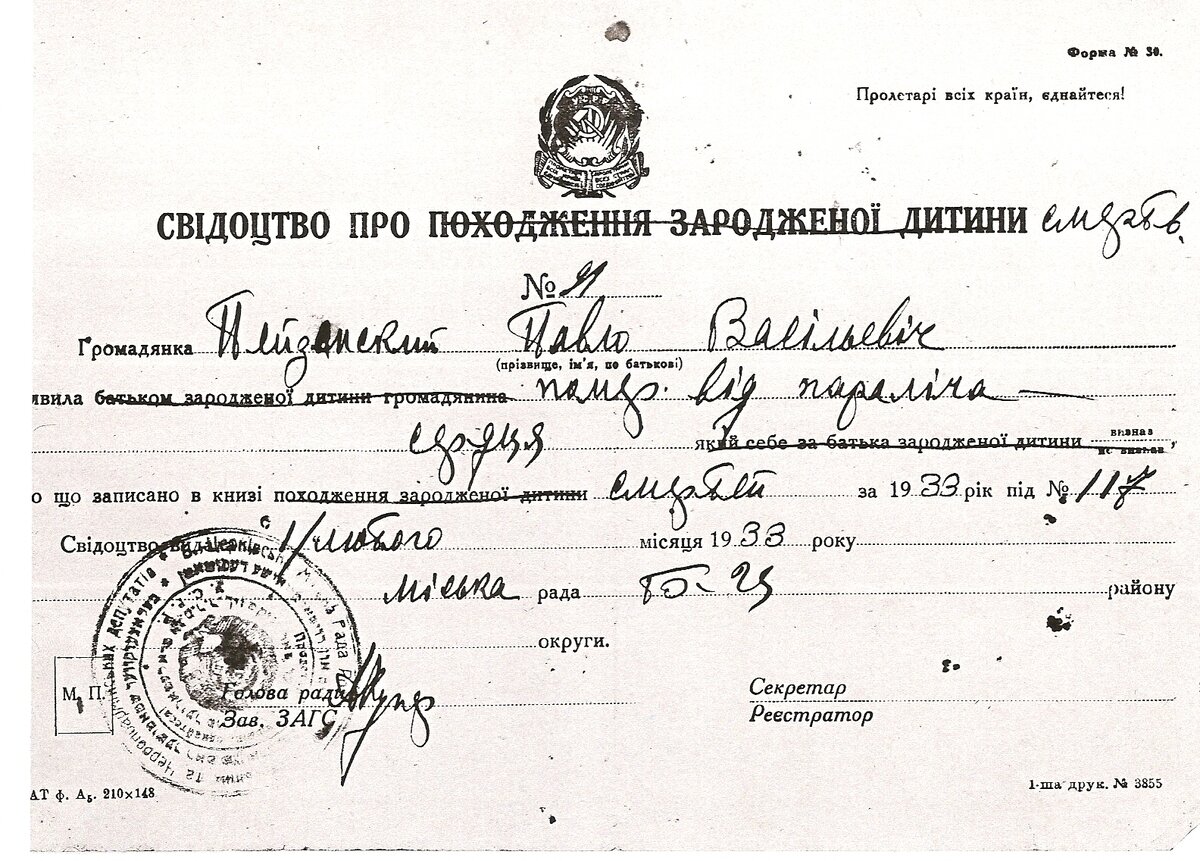 Форма № 30.
Пролетарі всіх країн, єднайтеся!
СВІДОЦТВО ПРО ПОХОДЖЕННЯ ЗАРОДЖЕНОЇ ДИТИНИ смерть.
№
Громадянка Павло Васільевіч
(прізвище, ім'я, по батькові)
явила батьком зародженої дитини громадянина помер. від параліча
серця який себе за батька зародженої дитини визнав
не визнав,
о що записано в книзі походження зародженої дитини смертей за 1933 рік під № 117
Свідоцтво видано 1/ лютого місяця 1933 року
міська рада Б-Ц району
округи.
М. П.
Голова ради
Зав. ЗАГС
Секретар
Реєстратор
АТ ф. А₅. 210×148
1-ша друк. № 3855